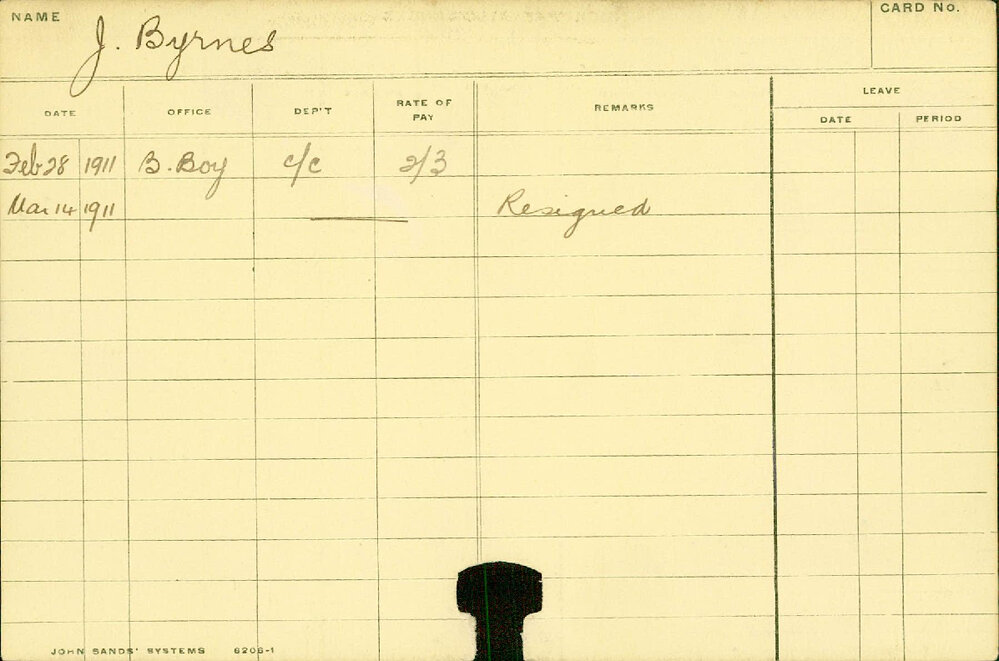 NAME
J. Byrnes
CARD No.
DATE OFFICE DEP'T RATE OF PAY REMARKS LEAVE
DATE PERIOD
Feb 28 1911 B. Boy c/c 2/3
Mar 14 1911 Resigned
JOHN SANDS' SYSTEMS 6206-1